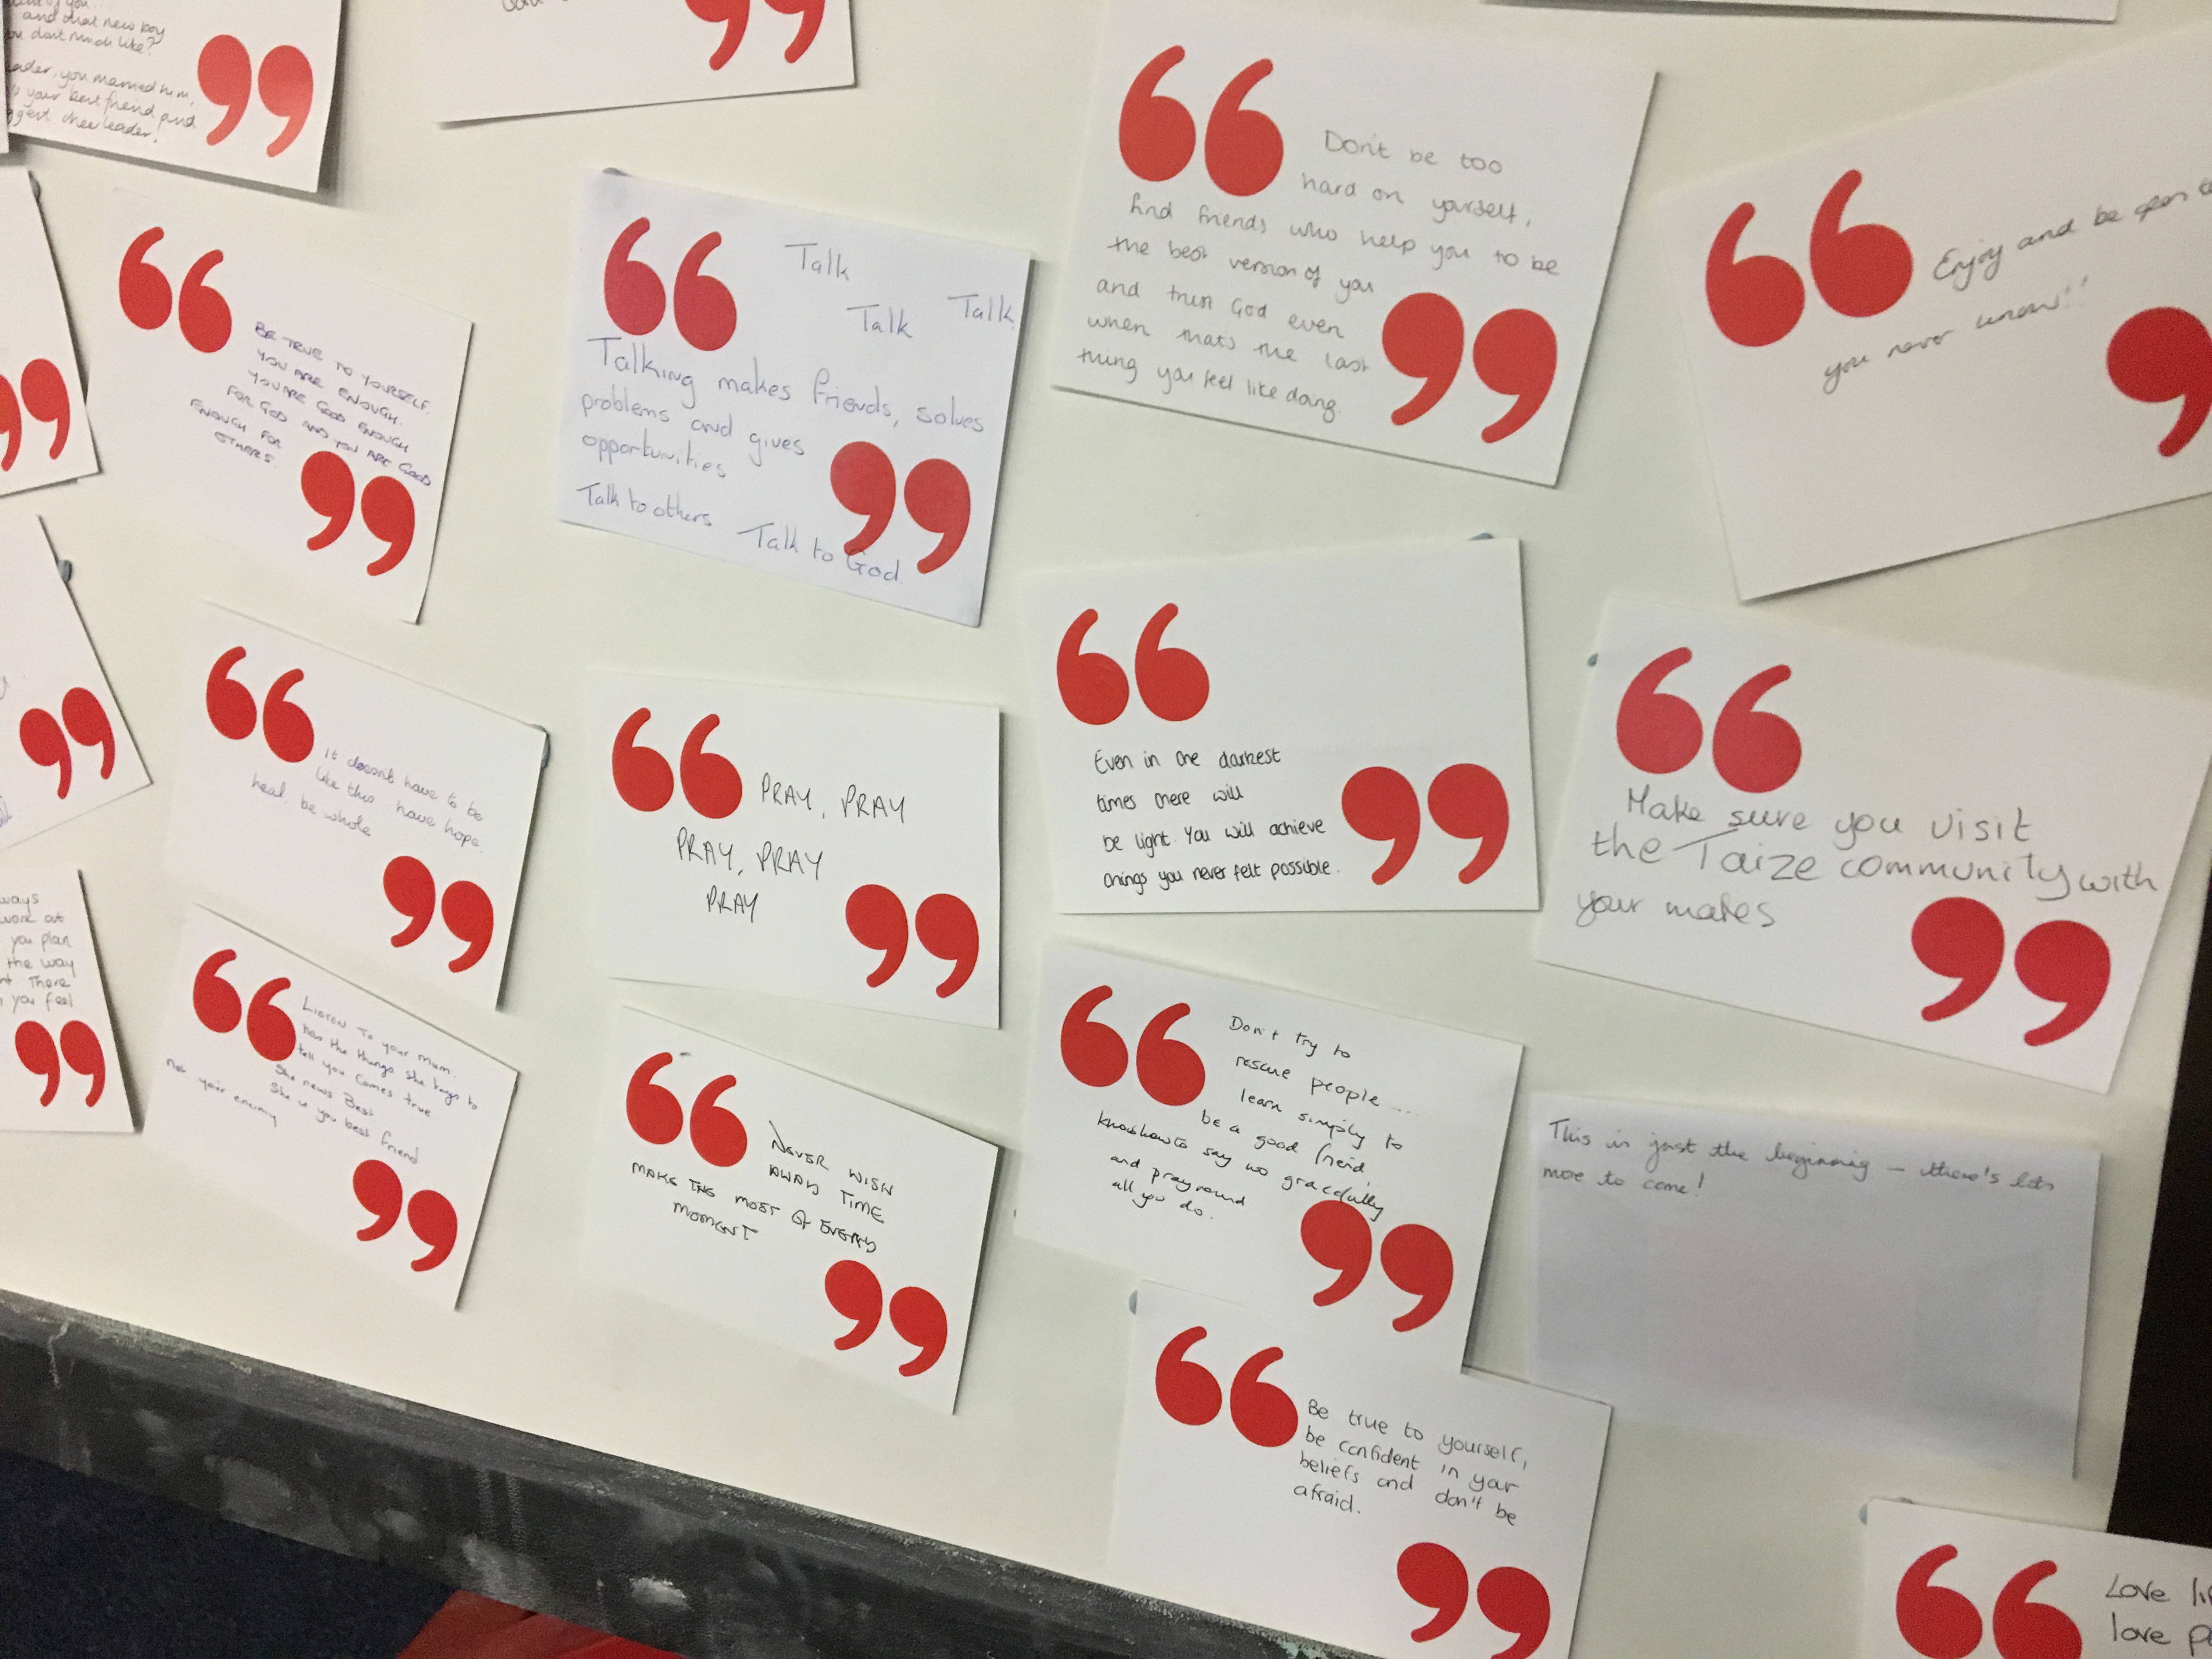 and that new boy
you don't much like?
you married him,
your best friend and
cheerleader!
Don't be too
hard on yourself,
find friends who help you to be
the best version of you
and trust God even
when thats the last
thing you feel like doing.
Enjoy and be open to
you never know!!
BE TRUE TO YOURSELF.
YOU ARE ENOUGH.
YOU ARE GOOD ENOUGH
FOR GOD AND YOU ARE GOOD
ENOUGH FOR
OTHERS.
Talk
Talk Talk
Talking makes friends, solves
problems and gives
opportunities
Talk to others Talk to God
It doesn't have to be
like this. have hope.
heal. be whole
PRAY, PRAY
PRAY, PRAY
PRAY
Even in the darkest
times there will
be light. You will achieve
things you never felt possible.
Make sure you visit
the Taize community with
your mates
ways
work out
you plan
the way
There
you feel
LISTEN To your mum.
the things she trys to
tell you comes true
She nows Best
She is you best friend
not your enemy
NEVER WISH
AWAY TIME
MAKE THE MOST OF EVERY
MOMENT
Don't try to
rescue people....
learn simply to
be a good friend
know how to say no gracefully
and pray round
all you do.
This is just the beginning – there's lots
more to come!
Be true to yourself,
be confident in your
beliefs and don't be
afraid.
Love
love